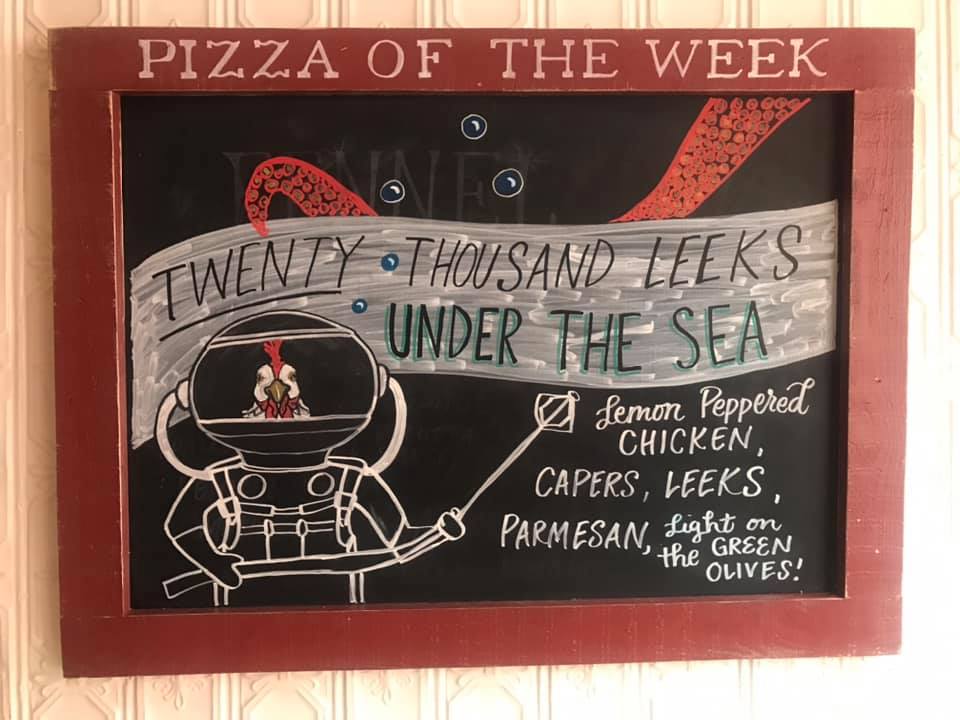 PIZZA OF THE WEEK
TWENTY THOUSAND LEEKS
UNDER THE SEA
Lemon Peppered
CHICKEN,
CAPERS, LEEKS,
PARMESAN, Light on
the GREEN
OLIVES!